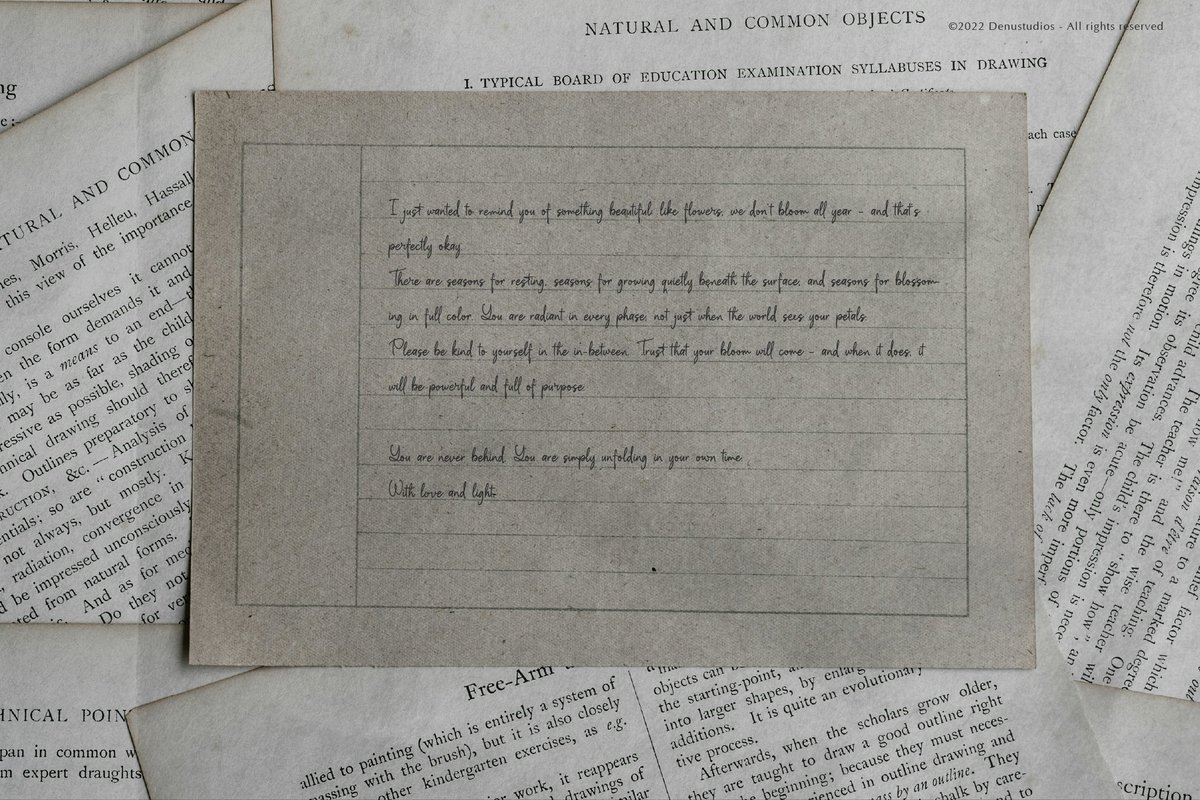 NATURAL AND COMMON OBJECTS
©2022 Denustudios - All rights reserved
I. TYPICAL BOARD OF EDUCATION EXAMINATION SYLLABUSES IN DRAWING
ach case
I just wanted to remind you of something beautiful: like flowers, we don't bloom all year - and that's
perfectly okay.
There are seasons for resting, seasons for growing quietly beneath the surface, and seasons for blossom-
ing in full color. You are radiant in every phase, not just when the world sees your petals.
Please be kind to yourself in the in-between. Trust that your bloom will come - and when it does, it
will be powerful and full of purpose.
You are never behind. You are simply unfolding in your own time.
With love and light,
ng
TURAL AND COMMON
nes, Morris, Helleu, Hassall
this view of the importance
console ourselves it cannot
en the form demands it and
lly, is a means to an end—t
may be as far as the child
ressive as possible, shading o
hnical drawing should theref
k. Outlines preparatory to sh
RUCTION, &c.—Analysis of
entials; so are "construction
not always, but mostly. K
, radiation, convergence in
d be impressed unconsciously
ted from natural forms.
And as for med
Do they not
for ver
HNICAL POIN
pan in common w
m expert draughts
Free-Arm
allied to painting (which is entirely a system of
massing with the brush), but it is also closely
other kindergarten exercises, as e.g.
work, it reappears
drawings of
similar
objects can b
the starting-point, a
into larger shapes, by enlarg
additions. It is quite an evolutionary
tive process.
Afterwards, when the scholars grow older,
they are taught to draw a good outline right
the beginning; because they must neces-
rienced in outline drawing and
mass by an outline. They
chalk by care-
d to
scription
mpression is therefore not the only factor. The lack of
ings in motion. Its expression is even more imperf
free, its observation be acute—only portions of
child advances. The child's impression is nece
The teacher is there to "show how", an
how me!" and the wise teacher wil
raison d'être of teaching. One
ture to a marked degre
her factor which